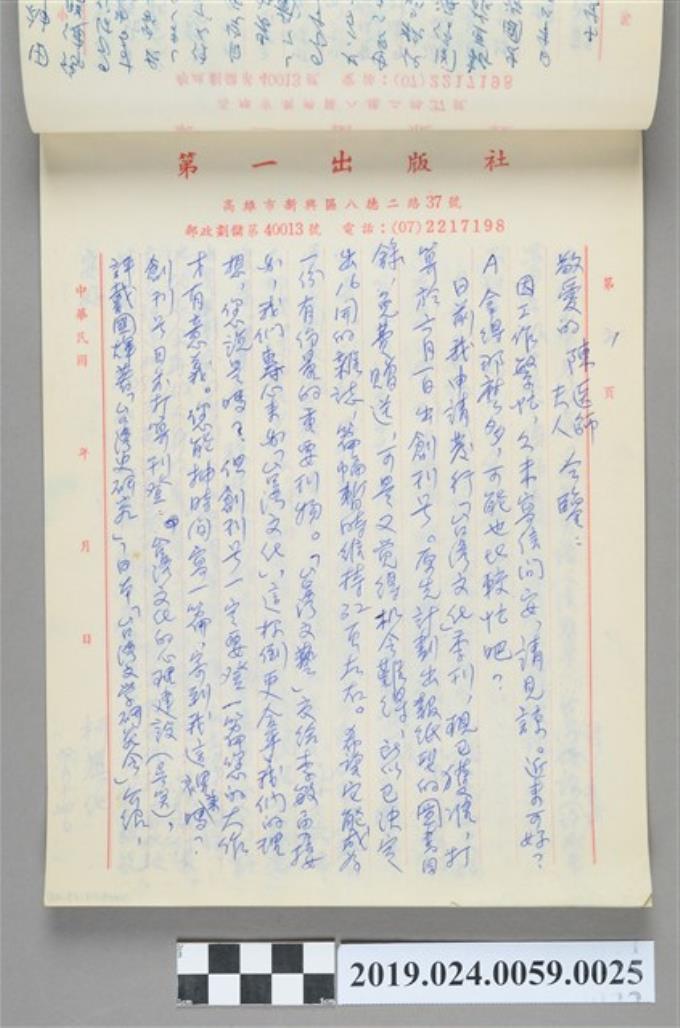 第一出版社
高雄市新興區八德二路37號
郵政劃儲第40013號 電話：(07)2217198
第 頁
敬愛的陳医師
夫人 台鑒：
因工作繁忙，久未寫信问安，請見諒。近来可好？
A 會得那麼多，可能也比較忙吧？
日前我申請发行「台湾文化」季刊，現已獲准，打
算於六月一日出創刊号。原先計劃出報紙型的圖書目
錄，免費贈送，可是又覚得机会難得，所以已決定
出16開的雜誌，篇幅暫時維持32頁左右。希望它能成为
一份有份量的重要刊物。「台湾文藝」交给李敏勇接
办，我们專心来办「台湾文化」，這樣倒更合乎我们的理
想，您說是嗎？但創刊号一定要登一篇您的大作
才有意義。您能抽時间寫一篇，寄到我這裡来嗎？
創刊号目前打算刊登：台湾文化的心理建設（吴寅），
評戴國煇著「台湾史研究」，日本「台湾文学研究会」介紹，
中華民國 年 月 日
2019.024.0059.0025